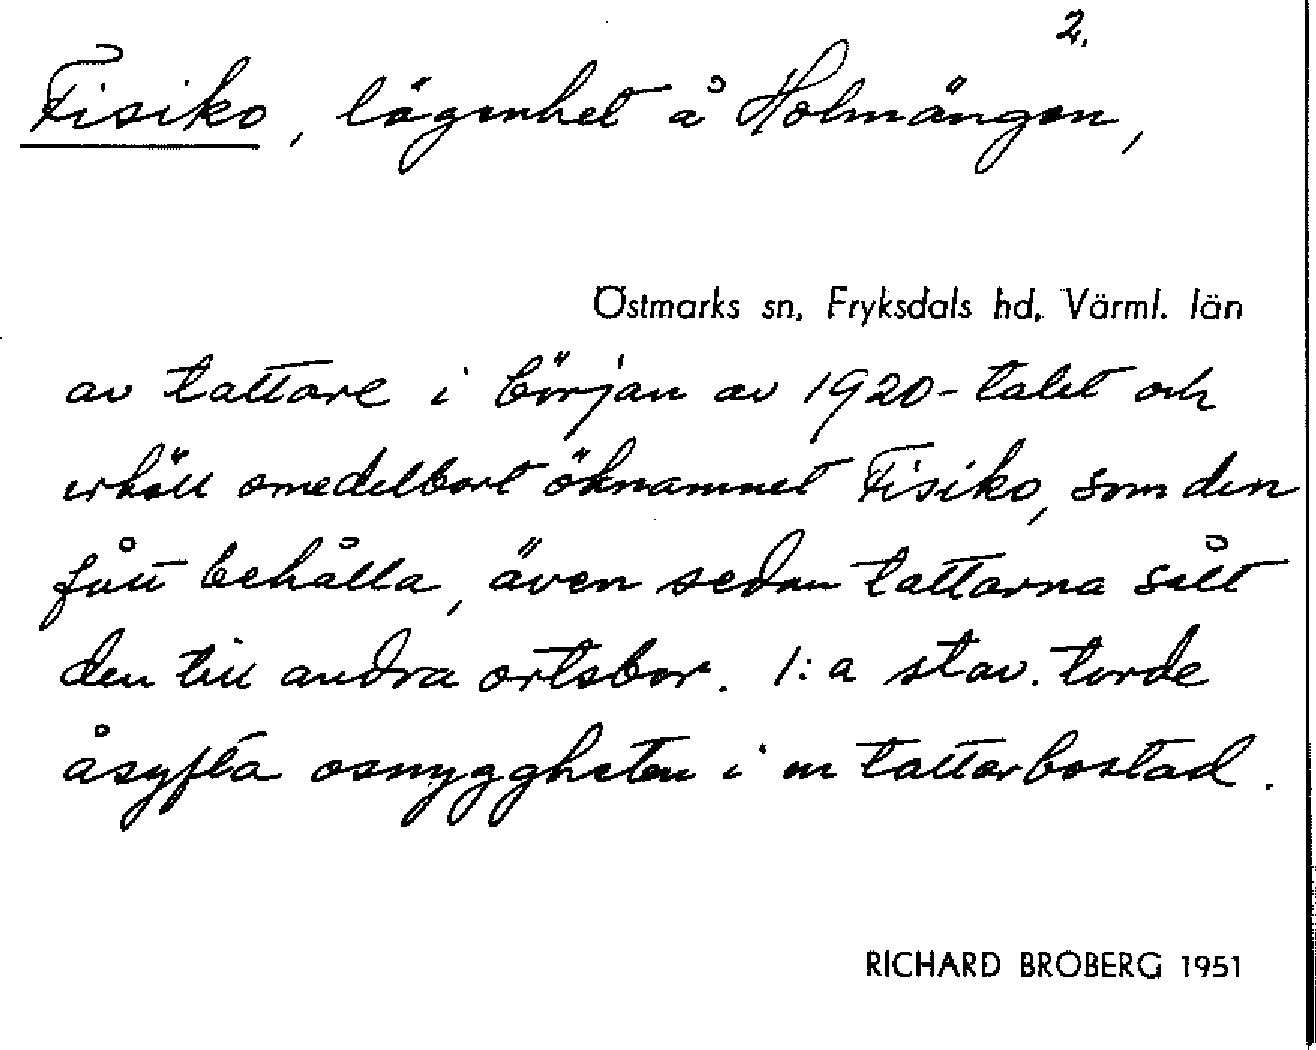 2.
Fisiko, lägenhet å Holmängen,
Östmarks sn, Fryksdals hd, Värml. län
av tattare i början av 1920-talet och
erhöll omedelbart öknamnet Fisiko, som den
fått behålla, även sedan tattarna sålt
den till andra ortsbor. 1:a stav. torde
åsyfta osnyggheten i en tattarbostad.
RICHARD BROBERG 1951